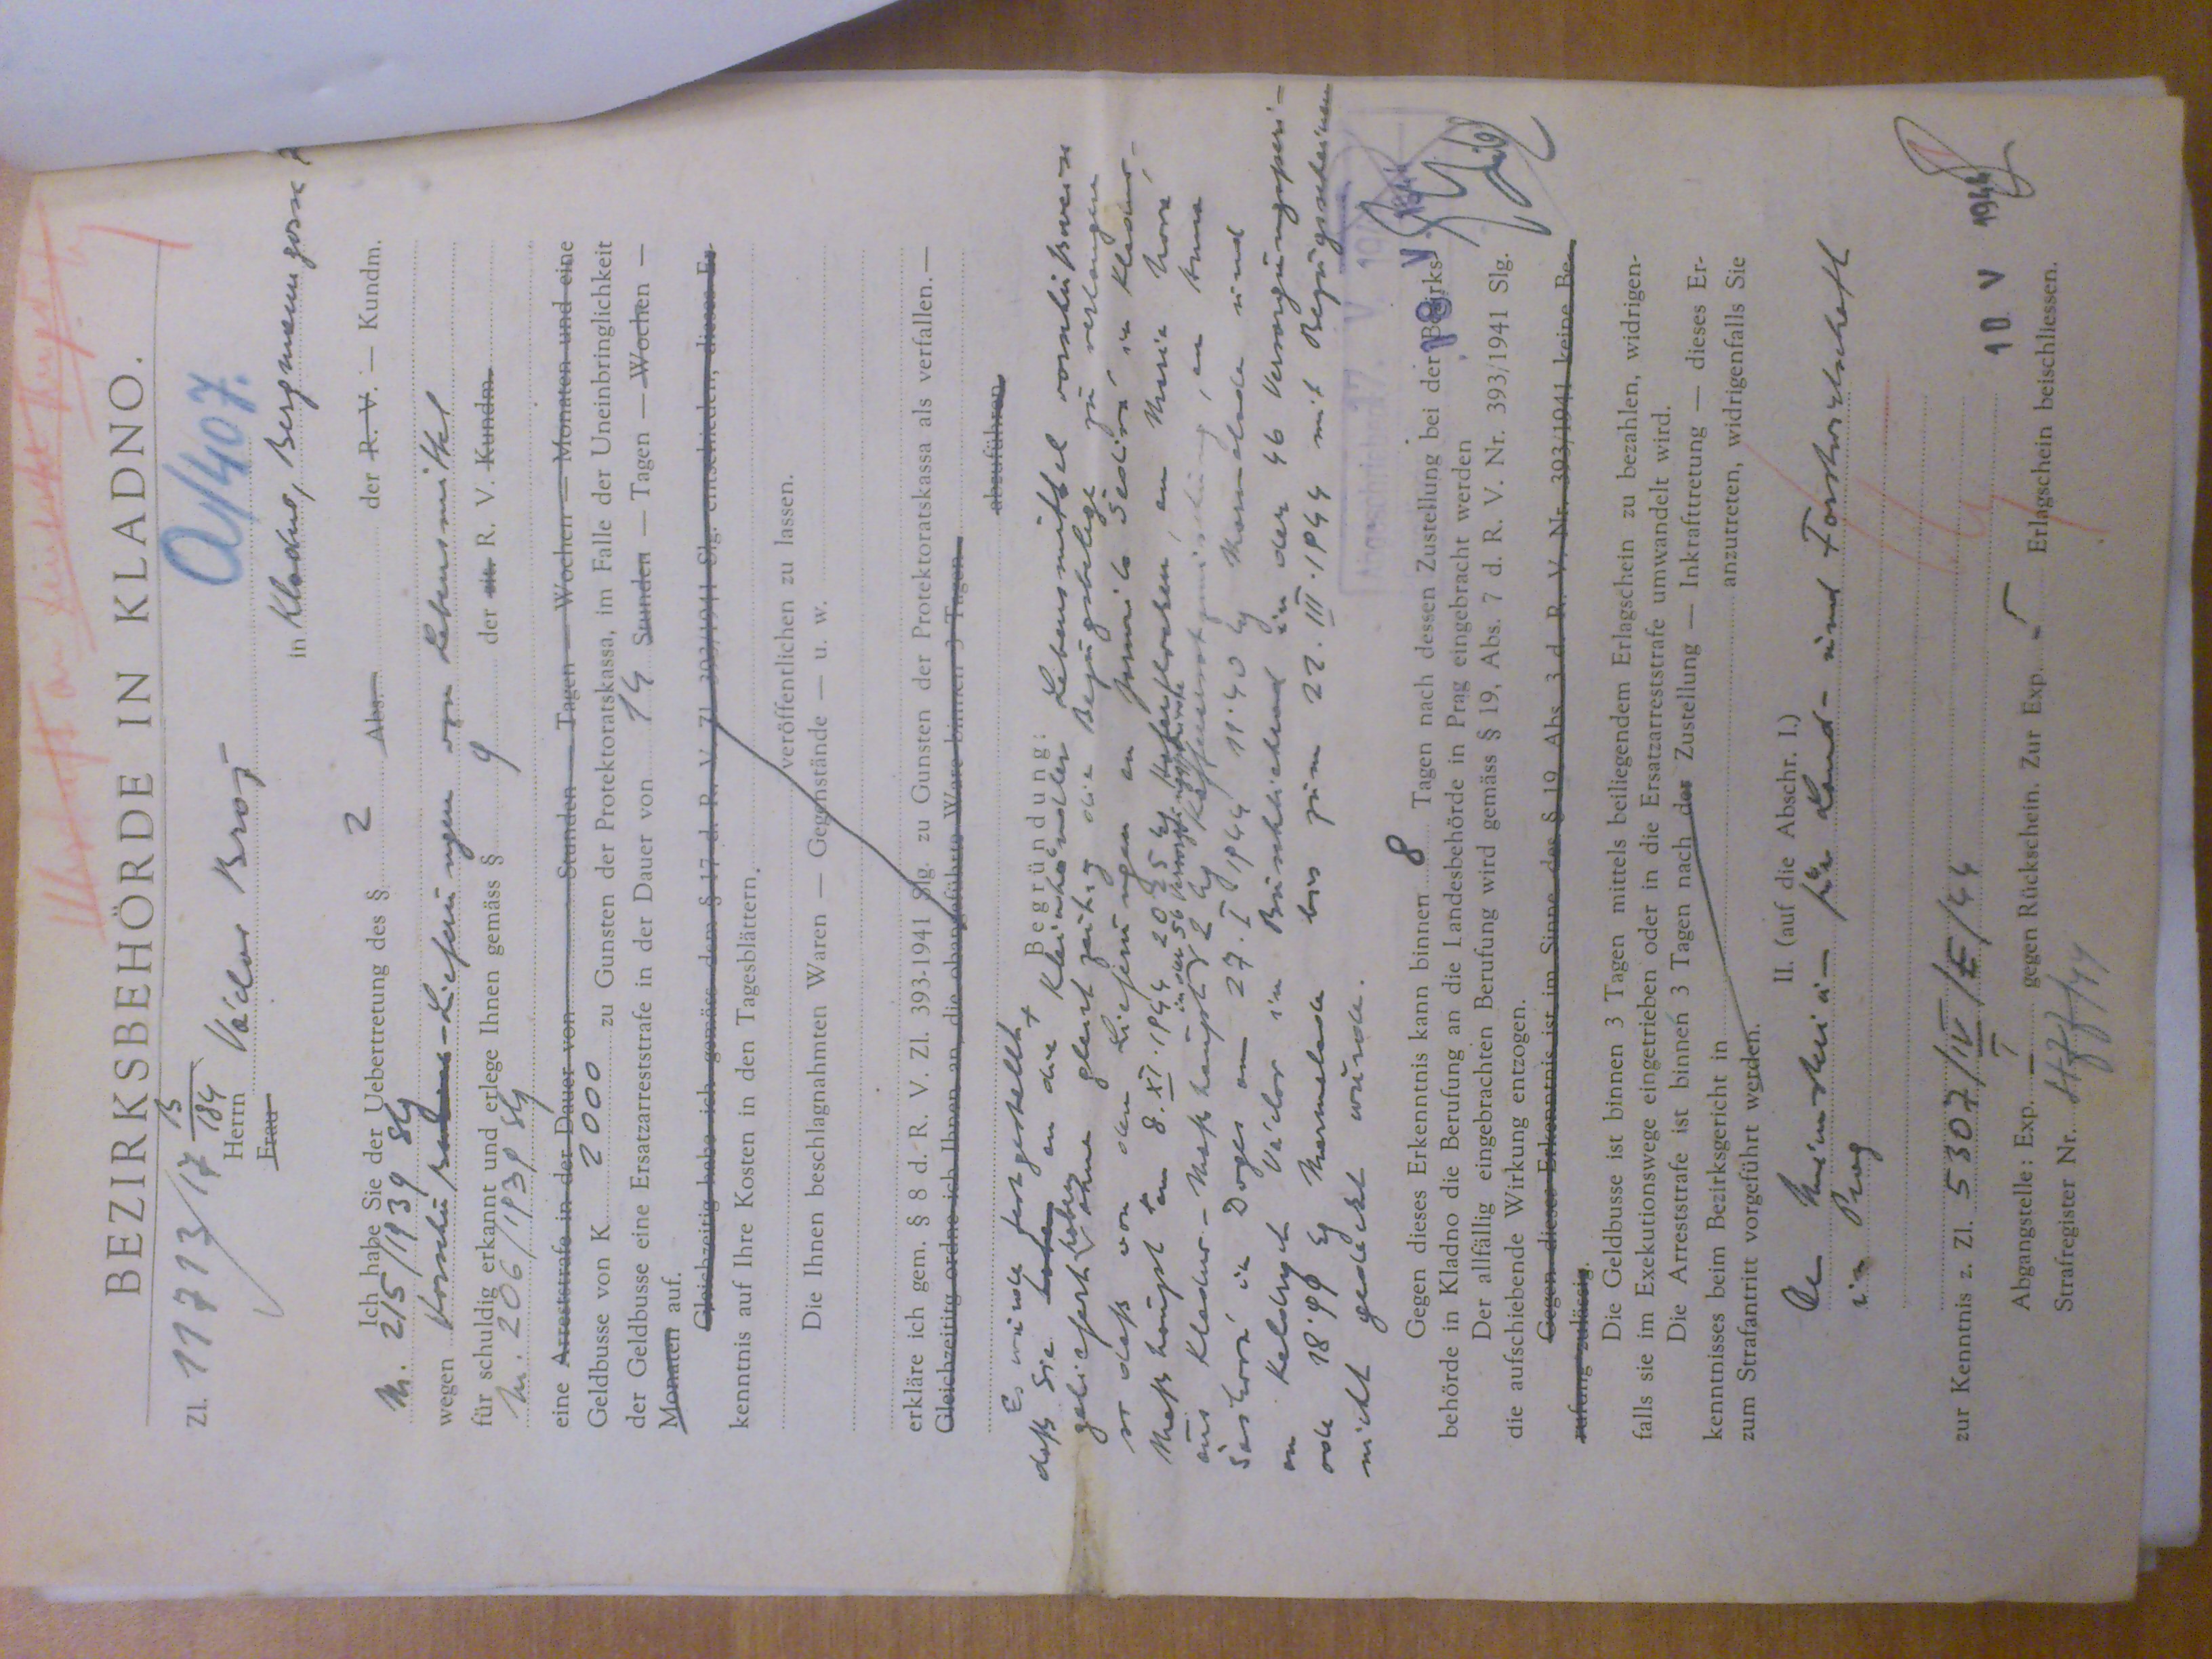 BEZIRKSBEHÖRDE IN KLADNO.
Zl. 11713/17 B/184
Q/407.
Herrn Václav Brož
Frau
in Kladno, Bergmanngasse
Ich habe Sie der Uebertretung des § 2 Abs. der R. V. — Kundm.
Nr. 215/1939 Slg
wegen Vorschuß-Lieferungen von Lebensmittel
für schuldig erkannt und erlege Ihnen gemäss § 9 der zit. R. V. Kundm.
Nr. 206/1939 Slg
eine Arreststrafe in der Dauer von Stunden — Tagen — Wochen — Monaten und eine
Geldbusse von K 2000 zu Gunsten der Protektoratskassa, im Falle der Uneinbringlichkeit
der Geldbusse eine Ersatzarreststrafe in der Dauer von 14 Stunden — Tagen — Wochen —
Monaten auf.
Gleichzeitig habe ich gemäss dem § 17 d. R. V. Zl. 393/1941 Slg. entschieden, dieses Er-
kenntnis auf Ihre Kosten in den Tagesblättern
veröffentlichen zu lassen.
Die Ihnen beschlagnahmten Waren — Gegenstände — u. w.
erkläre ich gem. § 8 d. R. V. Zl. 393-1941 Slg. zu Gunsten der Protektoratskassa als verfallen.—
Gleichzeititg ordne ich Ihnen an, die obangeführte Ware binnen 3 Tagen
abzuführen.
Es wurde festgestellt,
Begründung:
daß Sie haben an die Kleinhändler Lebensmittel vorschußweise
geliefert haben ohne gleichzeitig die Bezugsbelege zu verlangen
so daß von den Lieferungen an Šedivá in Kladno-
am 8. XI. 1944 2025 kg Haferflocken, an Marie Nová
in der 56 Versorgungsperiode
aus Kladno - 2 kg Kaffeeersatzmischung, an Anna
in Doges am 27. I 1944 11·40 kg Marmelade und
an Václav in Buschtiehrad in der 46 Versorgungsperi-
ode 18·99 kg Marmelade bis zum 22. III. 1944 mit Bezugsscheinen
nicht gedeckt wurde.
Abgeschrieben: 17. V.
Gegen dieses Erkenntnis kann binnen 8 Tagen nach dessen Zustellung bei der Bezirks-
18 V 1944
behörde in Kladno die Berufung an die Landesbehörde in Prag eingebracht werden
Der allfällig eingebrachten Berufung wird gemäss § 19, Abs. 7 d. R. V. Nr. 393/1941 Slg.
die aufschiebende Wirkung entzogen.
Gegen dieses Erkenntnis ist im Sinne des § 19 Abs. 3 d. R. V. Nr. 393/1941 keine Be-
rufung zulässig.
Die Geldbusse ist binnen 3 Tagen mittels beiliegendem Erlagschein zu bezahlen, widrigen-
falls sie im Exekutionswege eingetrieben oder in die Ersatzarreststrafe umwandelt wird.
Die Arreststrafe ist binnen 3 Tagen nach der Zustellung — Inkrafttretung — dieses Er-
kenntnisses beim Bezirksgericht in anzutreten, widrigenfalls Sie
zum Strafantritt vorgeführt werden.
II. (auf die Abschr. I.)
für Land- und Forstwirtschaft
in Prag
zur Kenntnis z. Zl. 5307/IV/E/44
10 V 1944
Abgangstelle: Exp. I gegen Rückschein. Zur Exp. Erlagschein beischliessen.
Strafregister Nr.